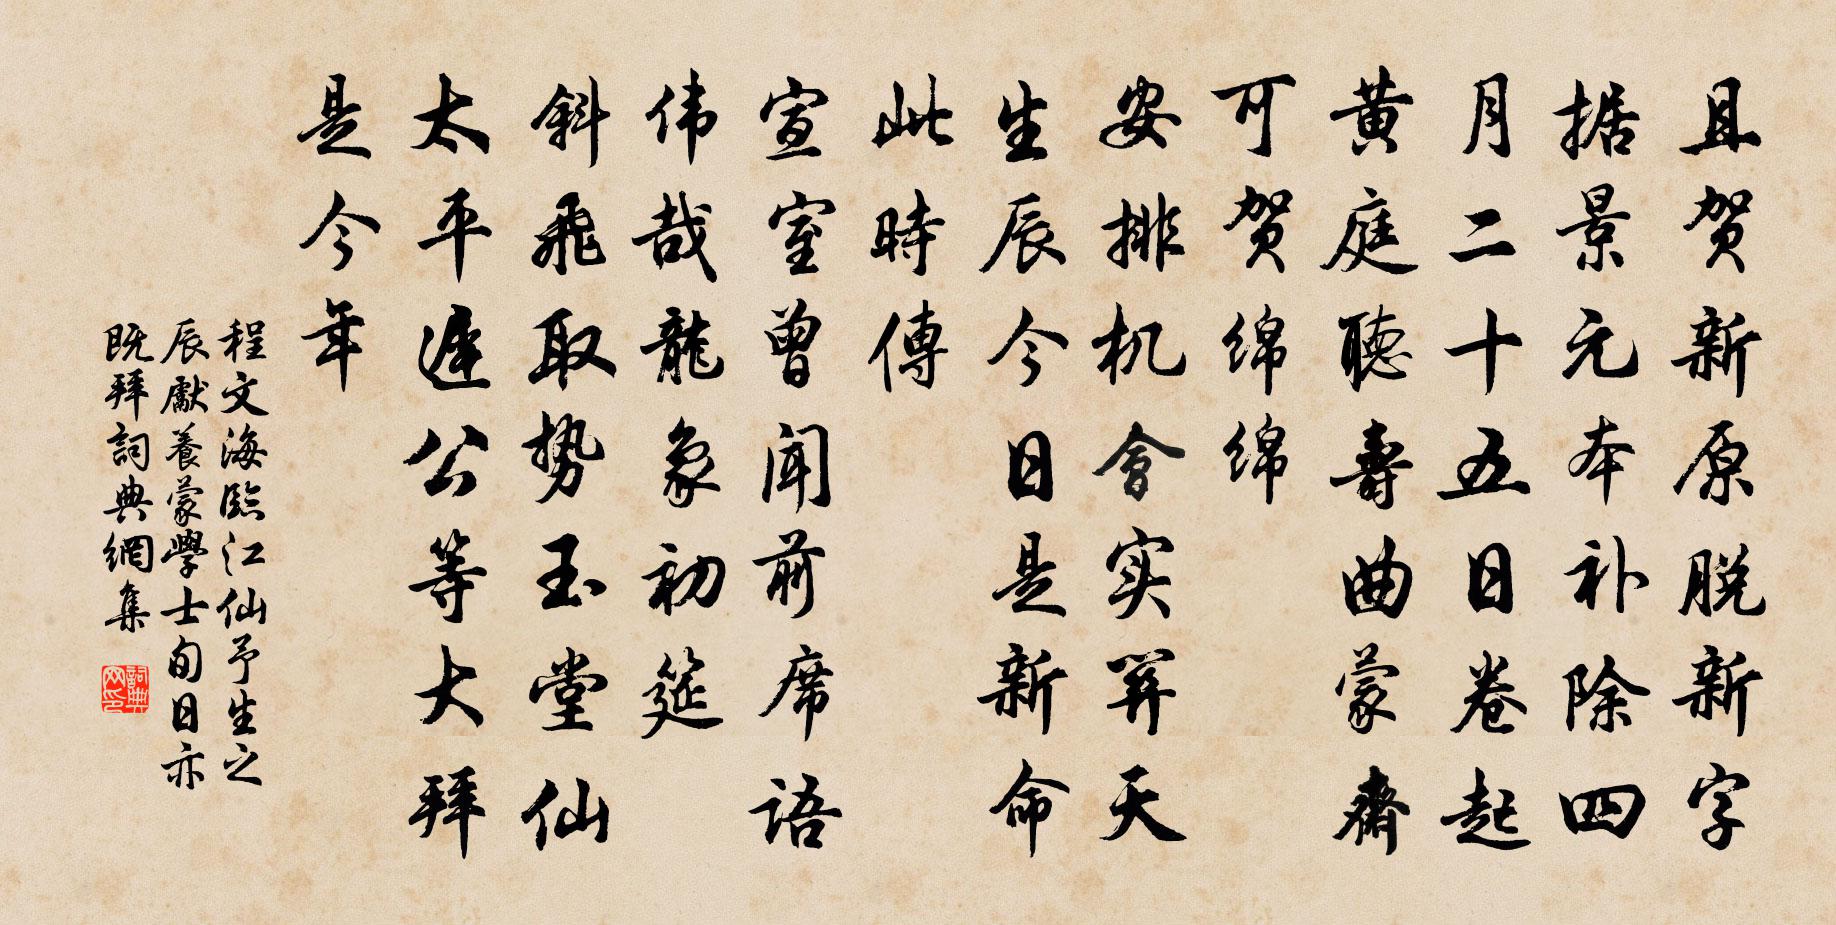 且贺新原脱新字
据景元本补除四
月二十五日卷起
黄庭聽壽曲蒙齋
可贺绵绵
安排机會实关天
生辰今日是新命
此時傳
宣室曾闻前席语
伟哉龍象初筵
斜飛取势玉堂仙
太平遲公等大拜
是今年
程文海臨江仙予生之
辰獻養蒙學士旬日亦
既拜詞典網集
詞典网印